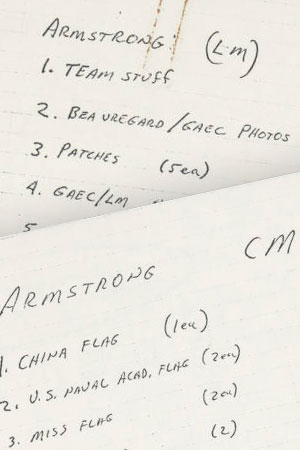 ARMSTRONG: (LM)
1. TEAM STUFF
2. BEAUREGARD/GAEC PHOTOS
3. PATCHES (5ea)
4. GAEC/LM
5
ARMSTRONG CM
1. CHINA FLAG (1ea)
2. U.S. NAVAL ACAD. FLAG (2ea)
3. MISS FLAG (2ea)
(2)